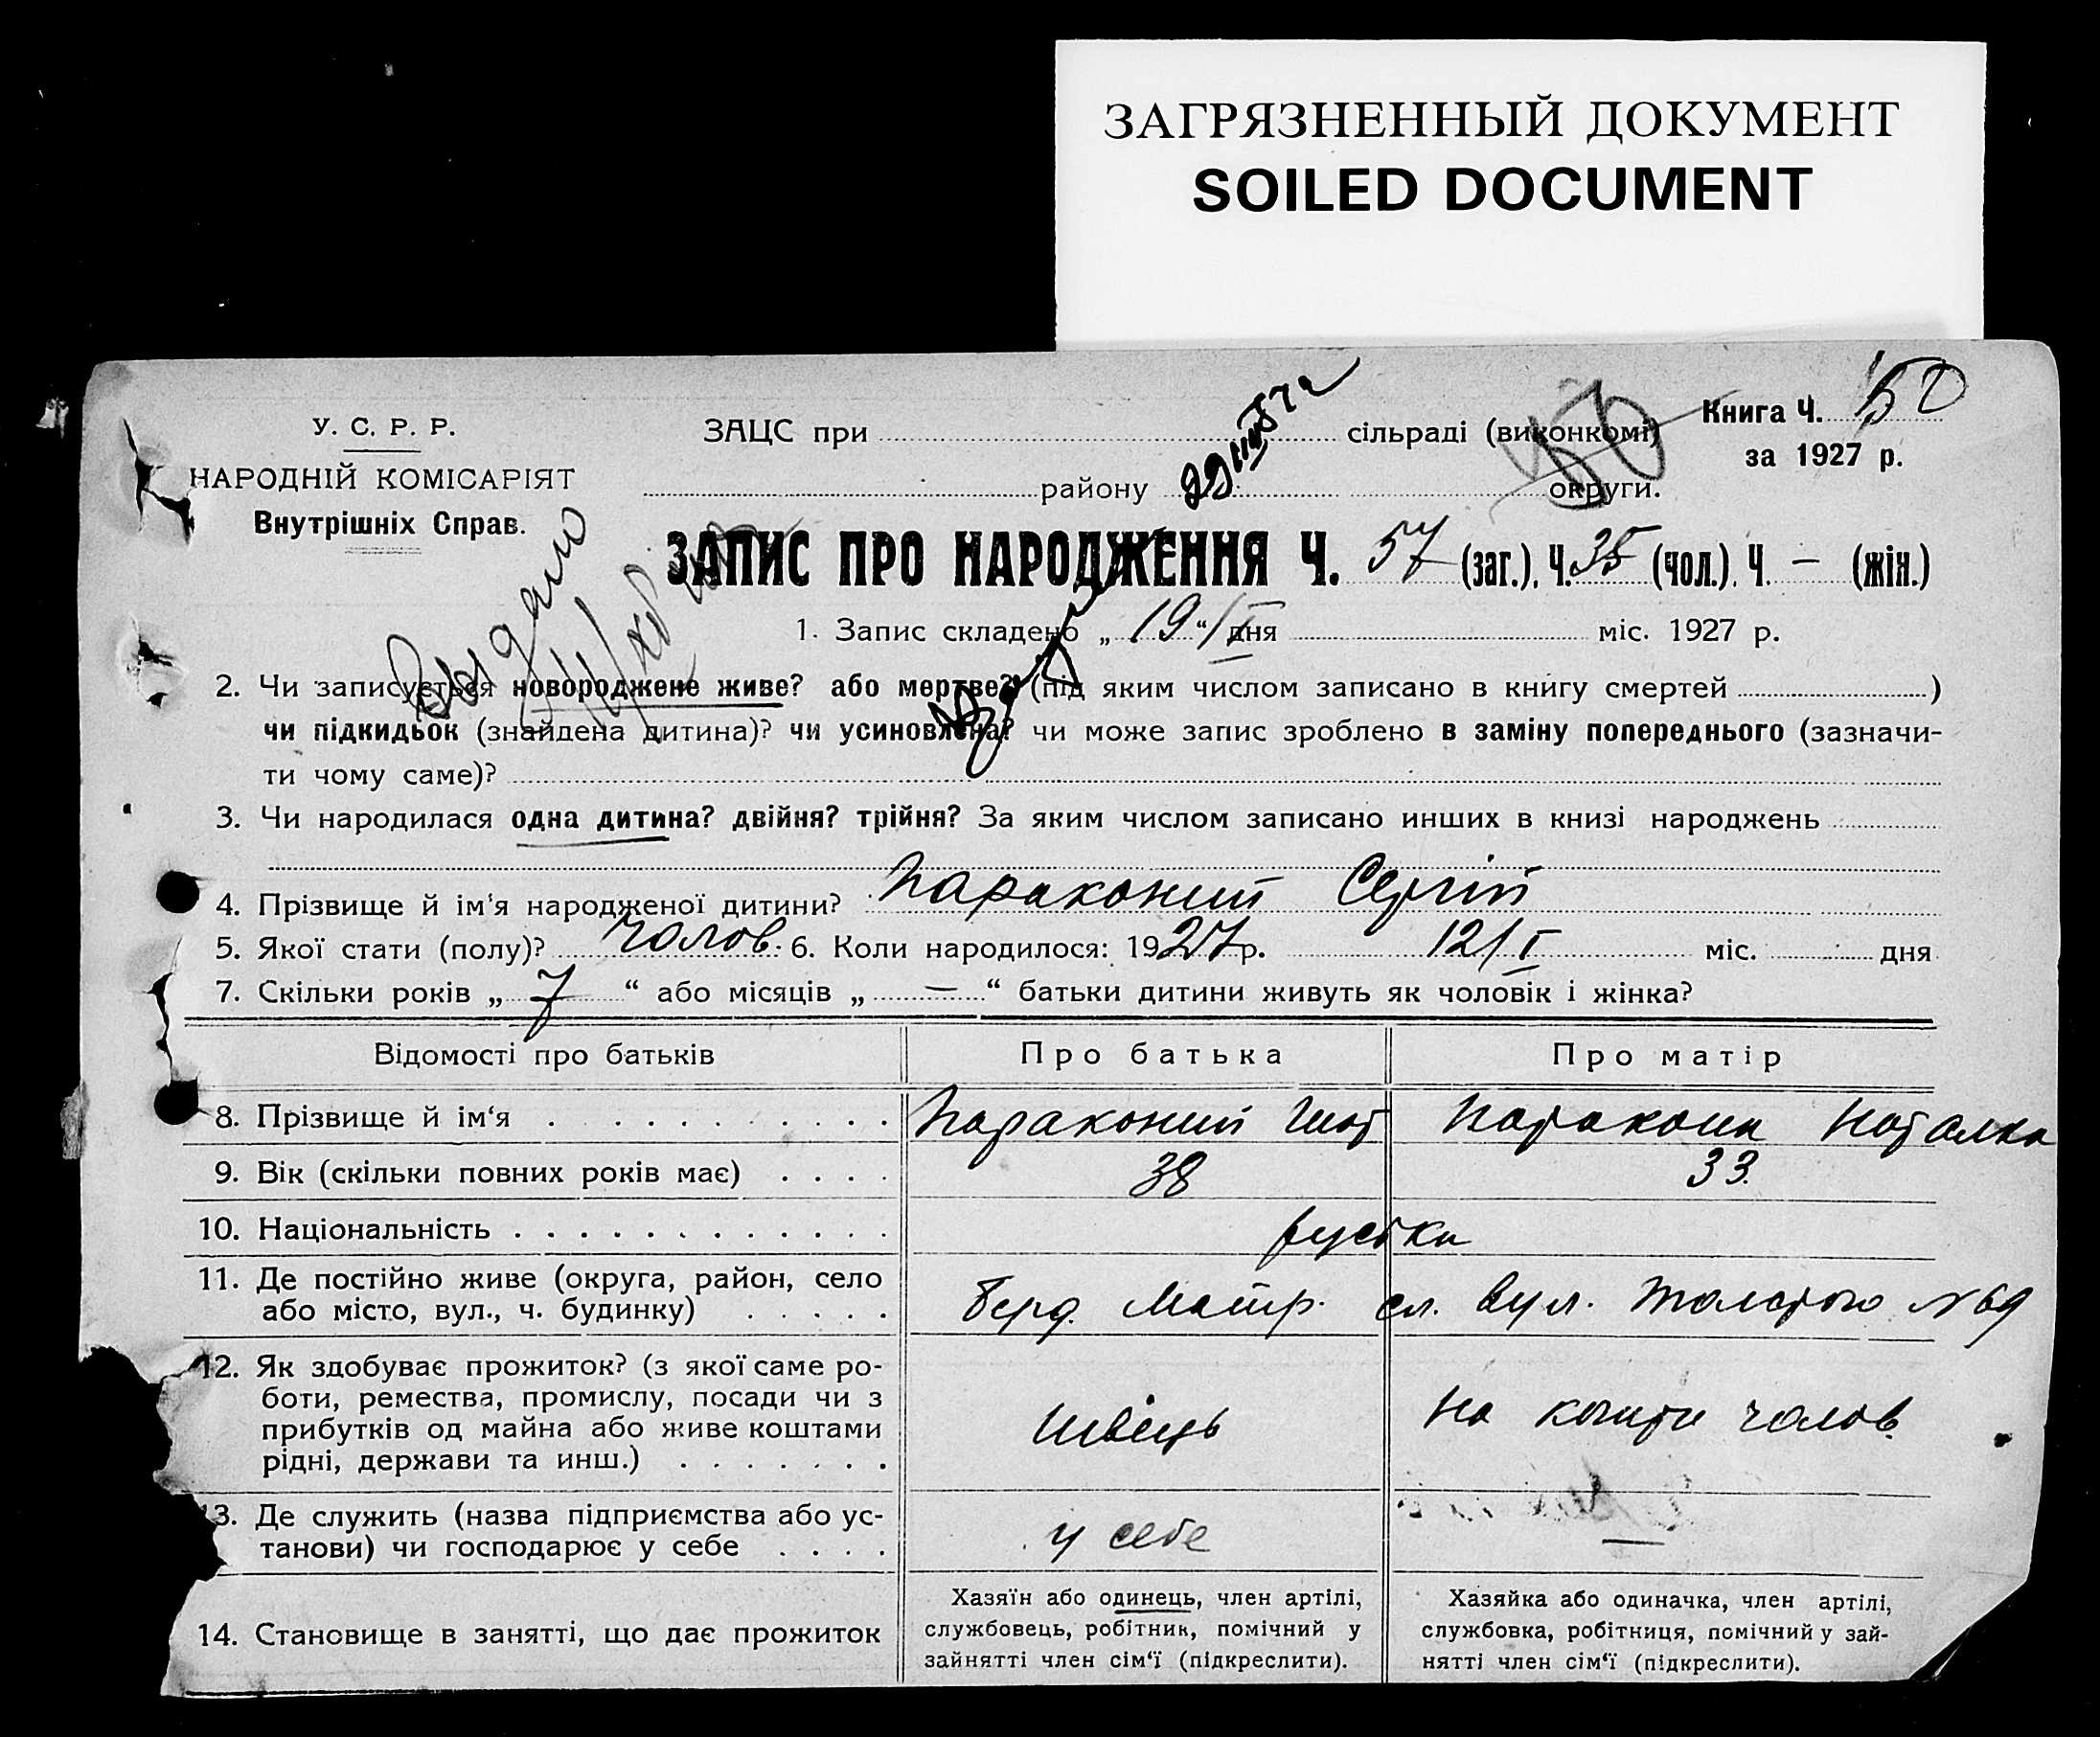 ЗАГРЯЗНЕННЫЙ ДОКУМЕНТ
SOILED DOCUMENT
У. С. Р. Р.
НАРОДНІЙ КОМІСАРІЯТ
Внутрішніх Справ.
ЗАЦС при сільраді (виконкомі)
району округи.
Книга Ч. 50
за 1927 р.
Видано
ЗАПИС ПРО НАРОДЖЕННЯ Ч. 57 (заг.), Ч. 35 (чол.), Ч. — (жін.)
1. Запис складено „ 19 “ /I дня міс. 1927 р.
2. Чи записується новороджене живе? або мертве? (під яким числом записано в книгу смертей )
чи підкидьок (знайдена дитина)? чи усиновлена? чи може запис зроблено в заміну попереднього (зазначи-
ти чому саме)?
3. Чи народилася одна дитина? двійня? трійня? За яким числом записано инших в книзі народжень
4. Прізвище й ім‘я народженої дитини? Параконий Сергій
5. Якої стати (полу)? чолов. 6. Коли народилося: 1927 р. 12/I міс. дня
7. Скільки років „ 7 “ або місяців „ — “ батьки дитини живуть як чоловік і жінка?
Відомості про батьків Про батька Про матір
8. Прізвище й ім‘я Параконий Параконя Наталка
9. Вік (скільки повних років має) 38 33.
10. Національність руські
11. Де постійно живе (округа, район, село
або місто, вул., ч. будинку) Берд. сл. Вул. Толстого № 69
12. Як здобуває прожиток? (з якої саме ро-
боти, ремества, промислу, посади чи з
прибутків од майна або живе коштами
рідні, держави та инш.) Швець На кошти чолов.
13. Де служить (назва підприємства або ус-
танови) чи господарює у себе у себе —
14. Становище в занятті, що дає прожиток
Хазяїн або одинець, член артілі,
службовець, робітник, помічний у
зайнятті член сім‘ї (підкреслити).
Хазяйка або одиначка, член артілі,
службовка, робітниця, помічний у зай-
нятті член сім‘ї (підкреслити).